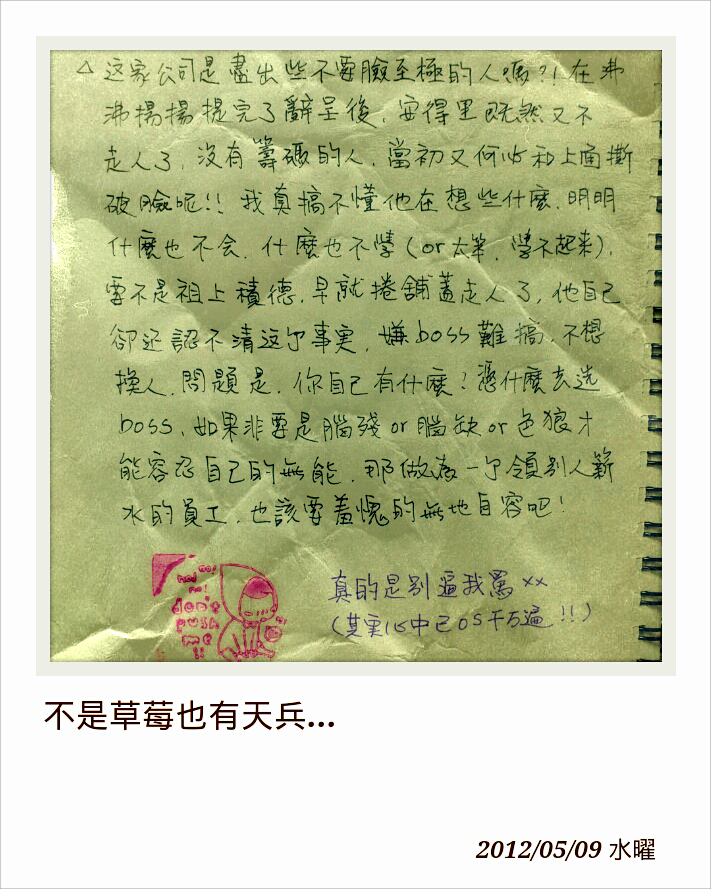 △ 这家公司是盡出些不要臉至極的人嗎?! 在沸
沸揚揚提完了辭呈後, 安得里既然又不
走人了, 沒有籌碼的人, 當初又何必和上面撕
破臉呢!! 我真搞不懂他在想些什麼, 明明
什麼也不会, 什麼也不學 (or 太笨, 學不起來),
要不是祖上積德, 早就捲舖蓋走人了, 他自己
卻还認不清这个事実, 嫌 boss 難搞, 不想
換人, 問題是, 你自己有什麼? 憑什麼去选
boss, 如果非要是腦殘 or 腦缺 or 色狼才
能容忍自己的無能, 那做為一个領別人薪
水的員工, 也該要羞愧的無地自容吧!
no! no!
don't
push
me
!!
真的是別逼我罵 xx
(其實心中已OS千万遍!!)
不是草莓也有天兵...
2012/05/09 水曜